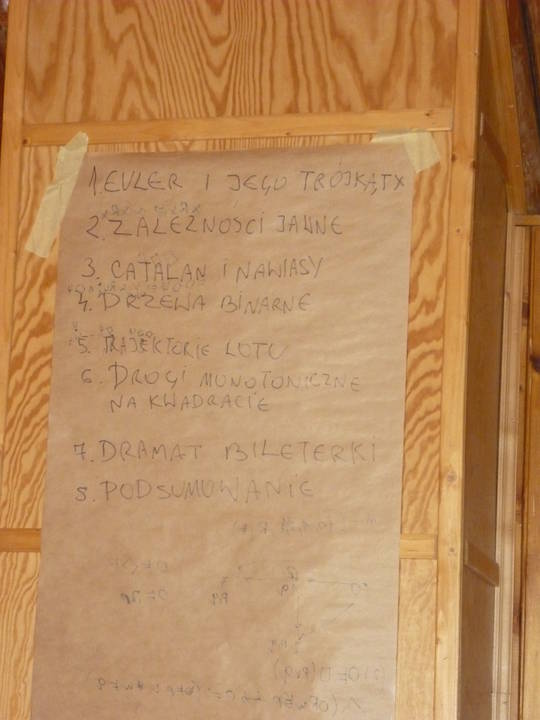 1. EULER I JEGO TRÓJKĄTY
2. ZALEŻNOŚCI JAWNE
3. CATALAN I NAWIASY
4. DRZEWA BINARNE
5. TRAJEKTORIE LOTU
6. DROGI MONOTONICZNE
NA KWADRACIE
7. DRAMAT BILETERKI
8. PODSUMOWANIE